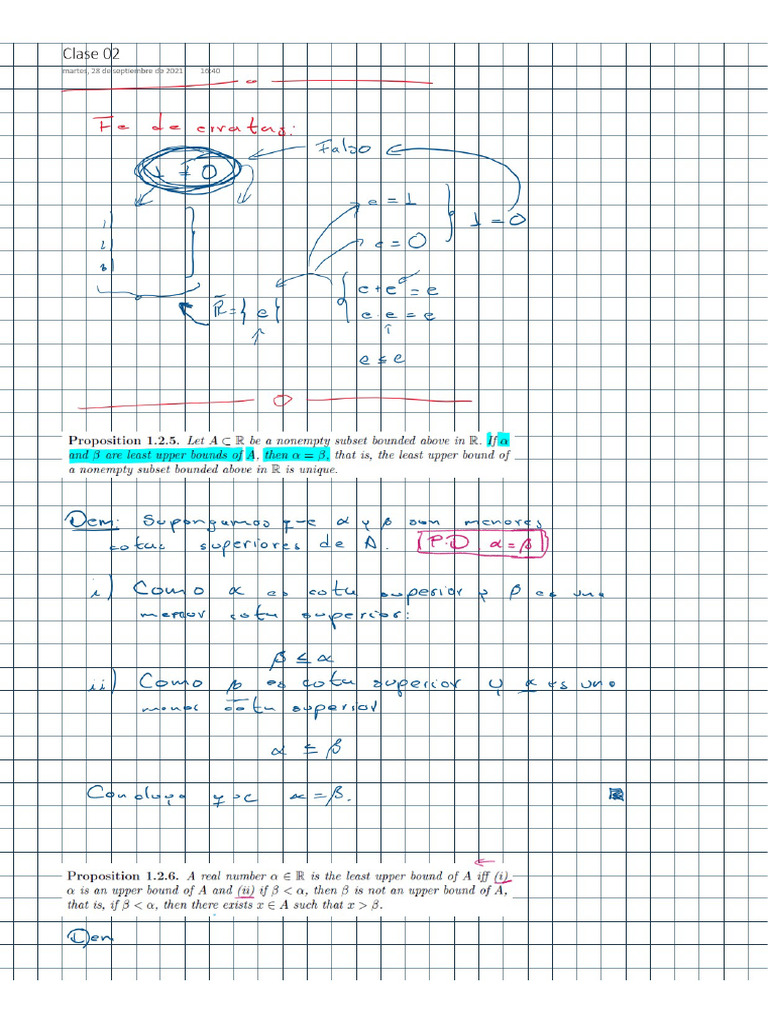 Clase 02
martes, 28 de septiembre de 2021 16:40
Fe de erratas:
1 ≠ 0
Falso
e = 1
e = 0
1 = 0
1)
2)
3)
R̄ = { e }
e + e = e
e · e = e
e ≤ e
Proposition 1.2.5. Let A ⊂ ℝ be a nonempty subset bounded above in ℝ. If α
and β are least upper bounds of A, then α = β, that is, the least upper bound of
a nonempty subset bounded above in ℝ is unique.
Dem: Supongamos que α y β son menores
cotas superiores de A. P.D α = β
i) Como α es cota superior y β es una
menor cota superior:
β ≤ α
ii) Como β es cota superior y α es una
menor cota superior
α ≤ β
Concluyo que α = β.
Proposition 1.2.6. A real number α ∈ ℝ is the least upper bound of A iff (i)
α is an upper bound of A and (ii) if β < α, then β is not an upper bound of A,
that is, if β < α, then there exists x ∈ A such that x > β.
Dem